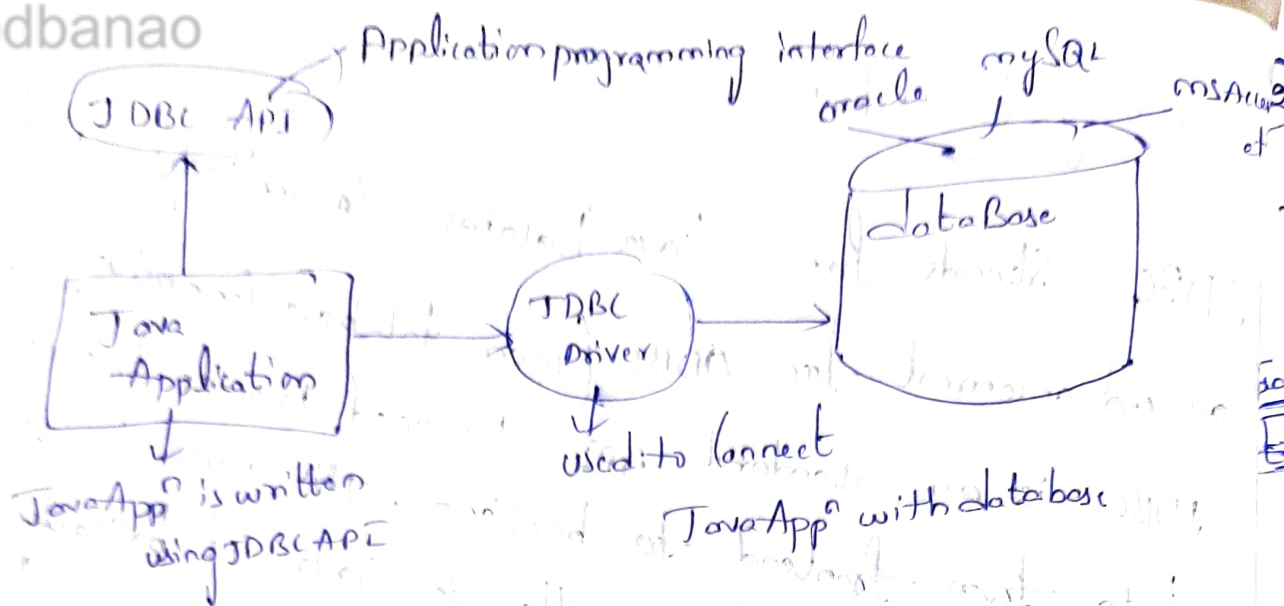 dbanao
Application programming interface
JDBC API
oracle
mySQL
msAcce
et
dataBase
Java
Application
JDBC
Driver
Java Appⁿ is written
using JDBC API
used to Connect
Java Appⁿ with database